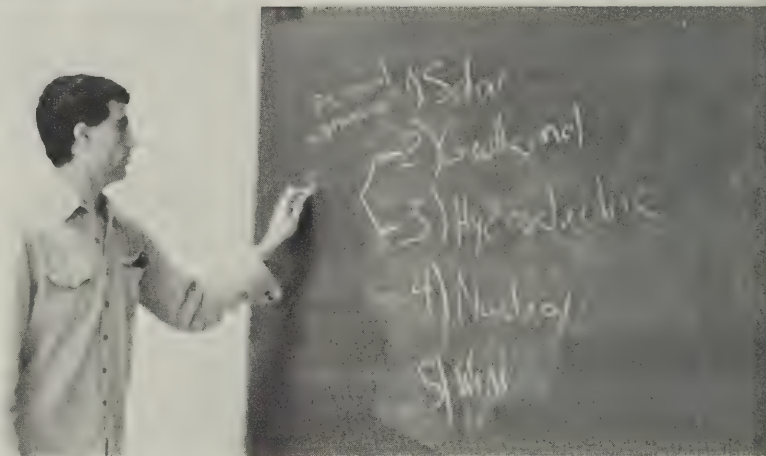 1) Solar
2) Geothermal
3) Hydroelectric
4) Nuclear
5) Wind